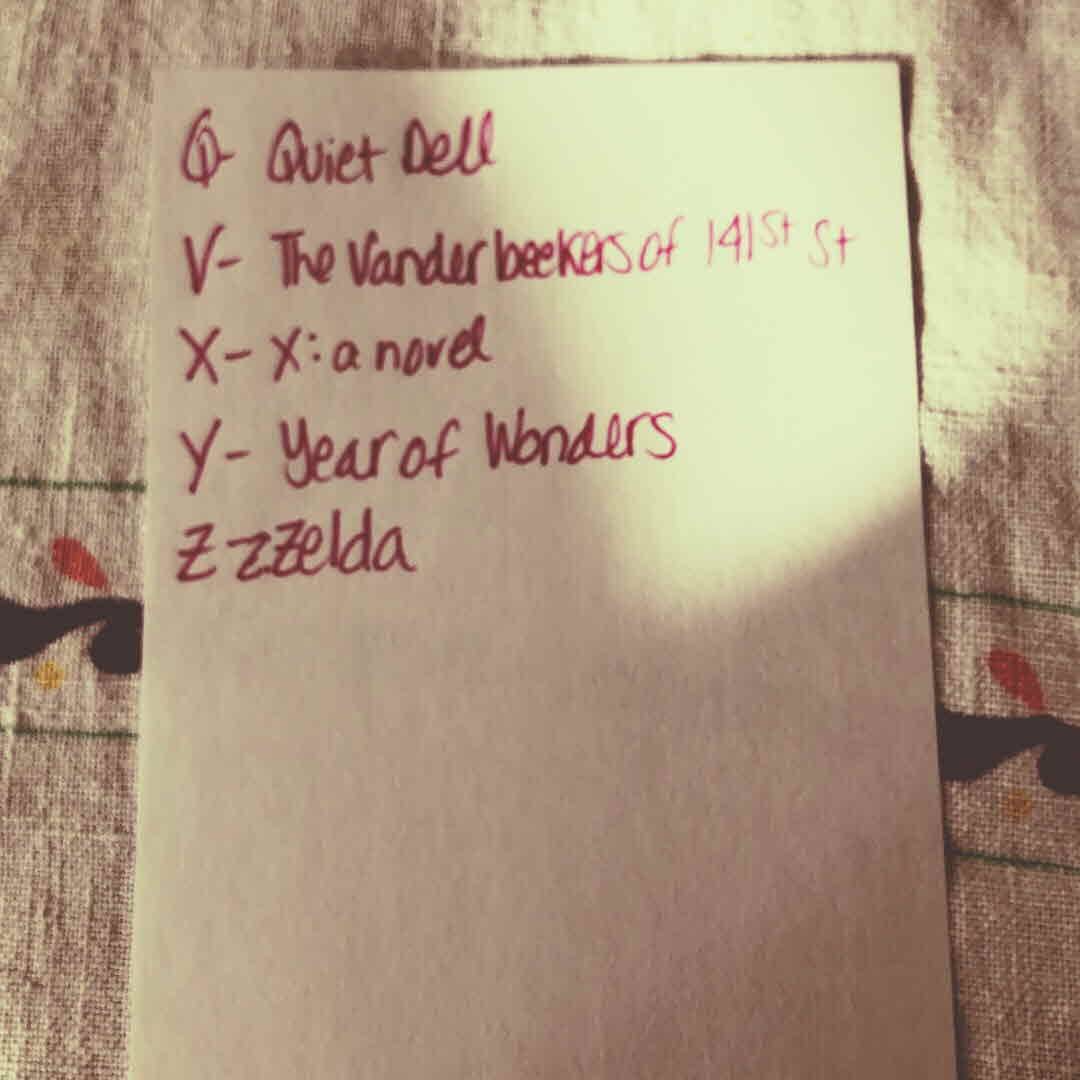 Q- Quiet Dell
V- The Vanderbeekers of 141st St
X- X: a novel
Y- Year of Wonders
Z-zZelda